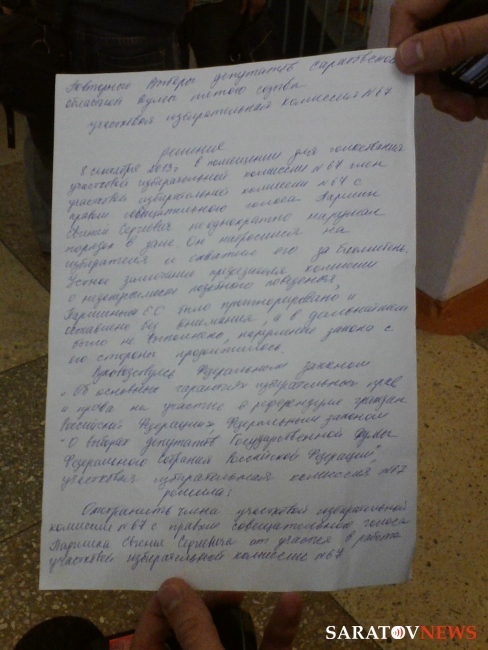 Повторные Выборы депутатов Саратовской
областной Думы пятого созыва
участковая избирательная комиссия №67
решение
8 сентября 2013г в помещении для голосования
участковой избирательной комиссии №67 член
участковой избирательной комиссии №67 с
правом совещательного голоса
Сергеевич неоднократно нарушал
порядок в зале. Он набросился на
избирателя и схватил его за
Устное замечание председателя комиссии
о недопустимости подобного поведения,
было проигнорировано, и
оставлено без внимания, а в дальнейшем
было не выполнено, нарушение закона с
его стороны продолжилось.
Руководствуясь Федеральным законом
"Об основных гарантиях избирательных прав
и права на участие в референдуме граждан
Российской Федерации", Федеральным законом
"О выборах депутатов Государственной Думы
Федерального Собрания Российской Федерации",
участковая избирательная комиссия №67
решила:
Отстранить члена участковой избирательной
комиссии №67 с правом совещательного голоса
Сергеевича от участия в работе
участковой избирательной комиссии №67
SARATOVNEWS